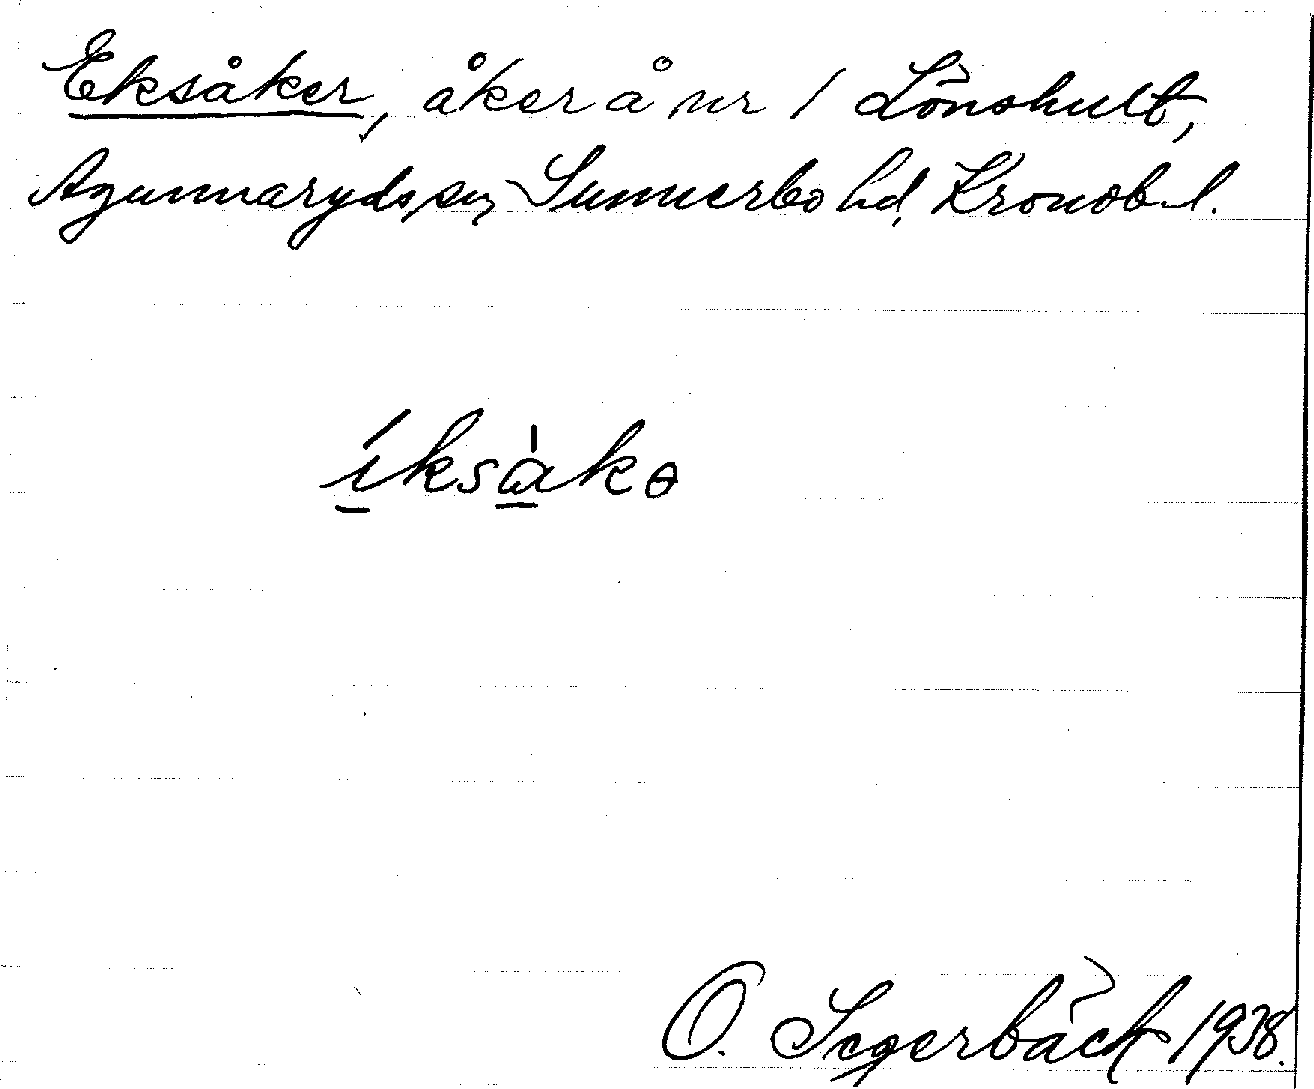 Eksåker, åker å nr 1 Lönshult,
Agunnaryds sn, Sunnerbo hd, Kronob. l.
íksàkɵ
O. Segerbäck 1938.